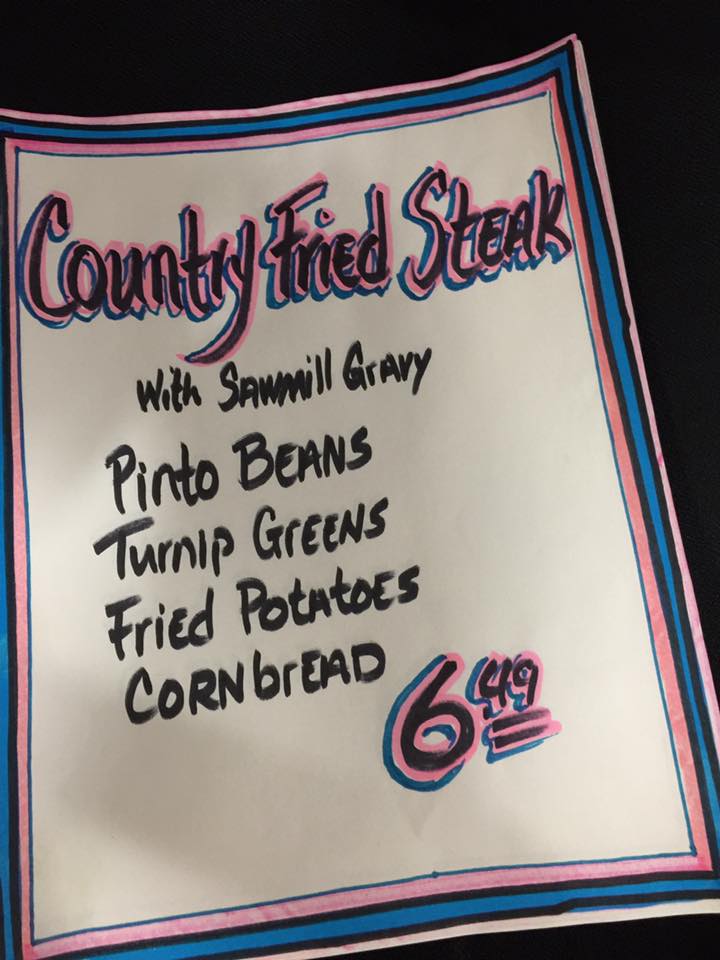 Country Fried Steak
With Sawmill Gravy
Pinto Beans
Turnip Greens
Fried Potatoes
Cornbread
6 49